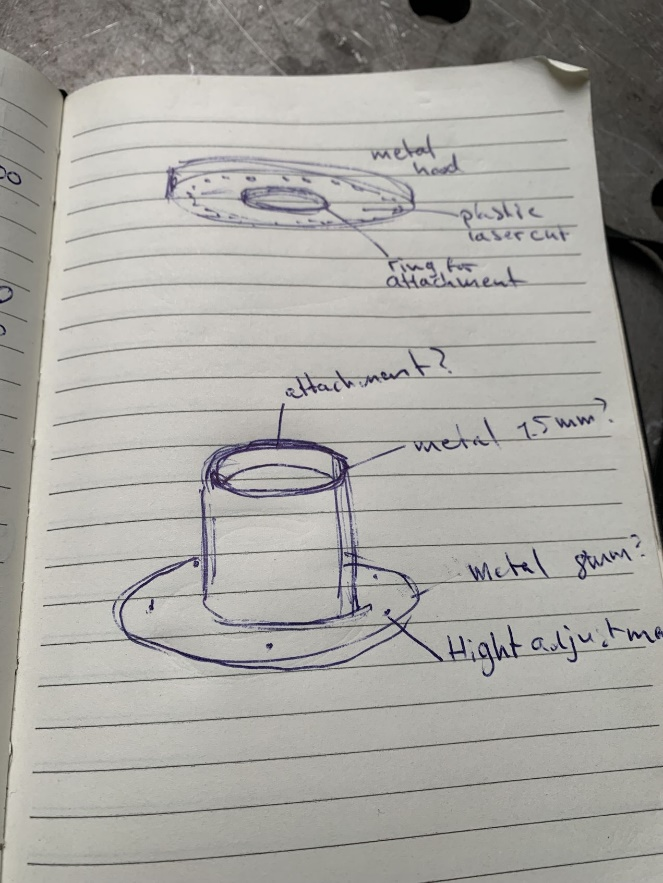 metal
hood
plastic
laser cut
ring for
attachment
attachment?
metal 1.5mm?
Metal 8mm?
Hight adjustme
00
0